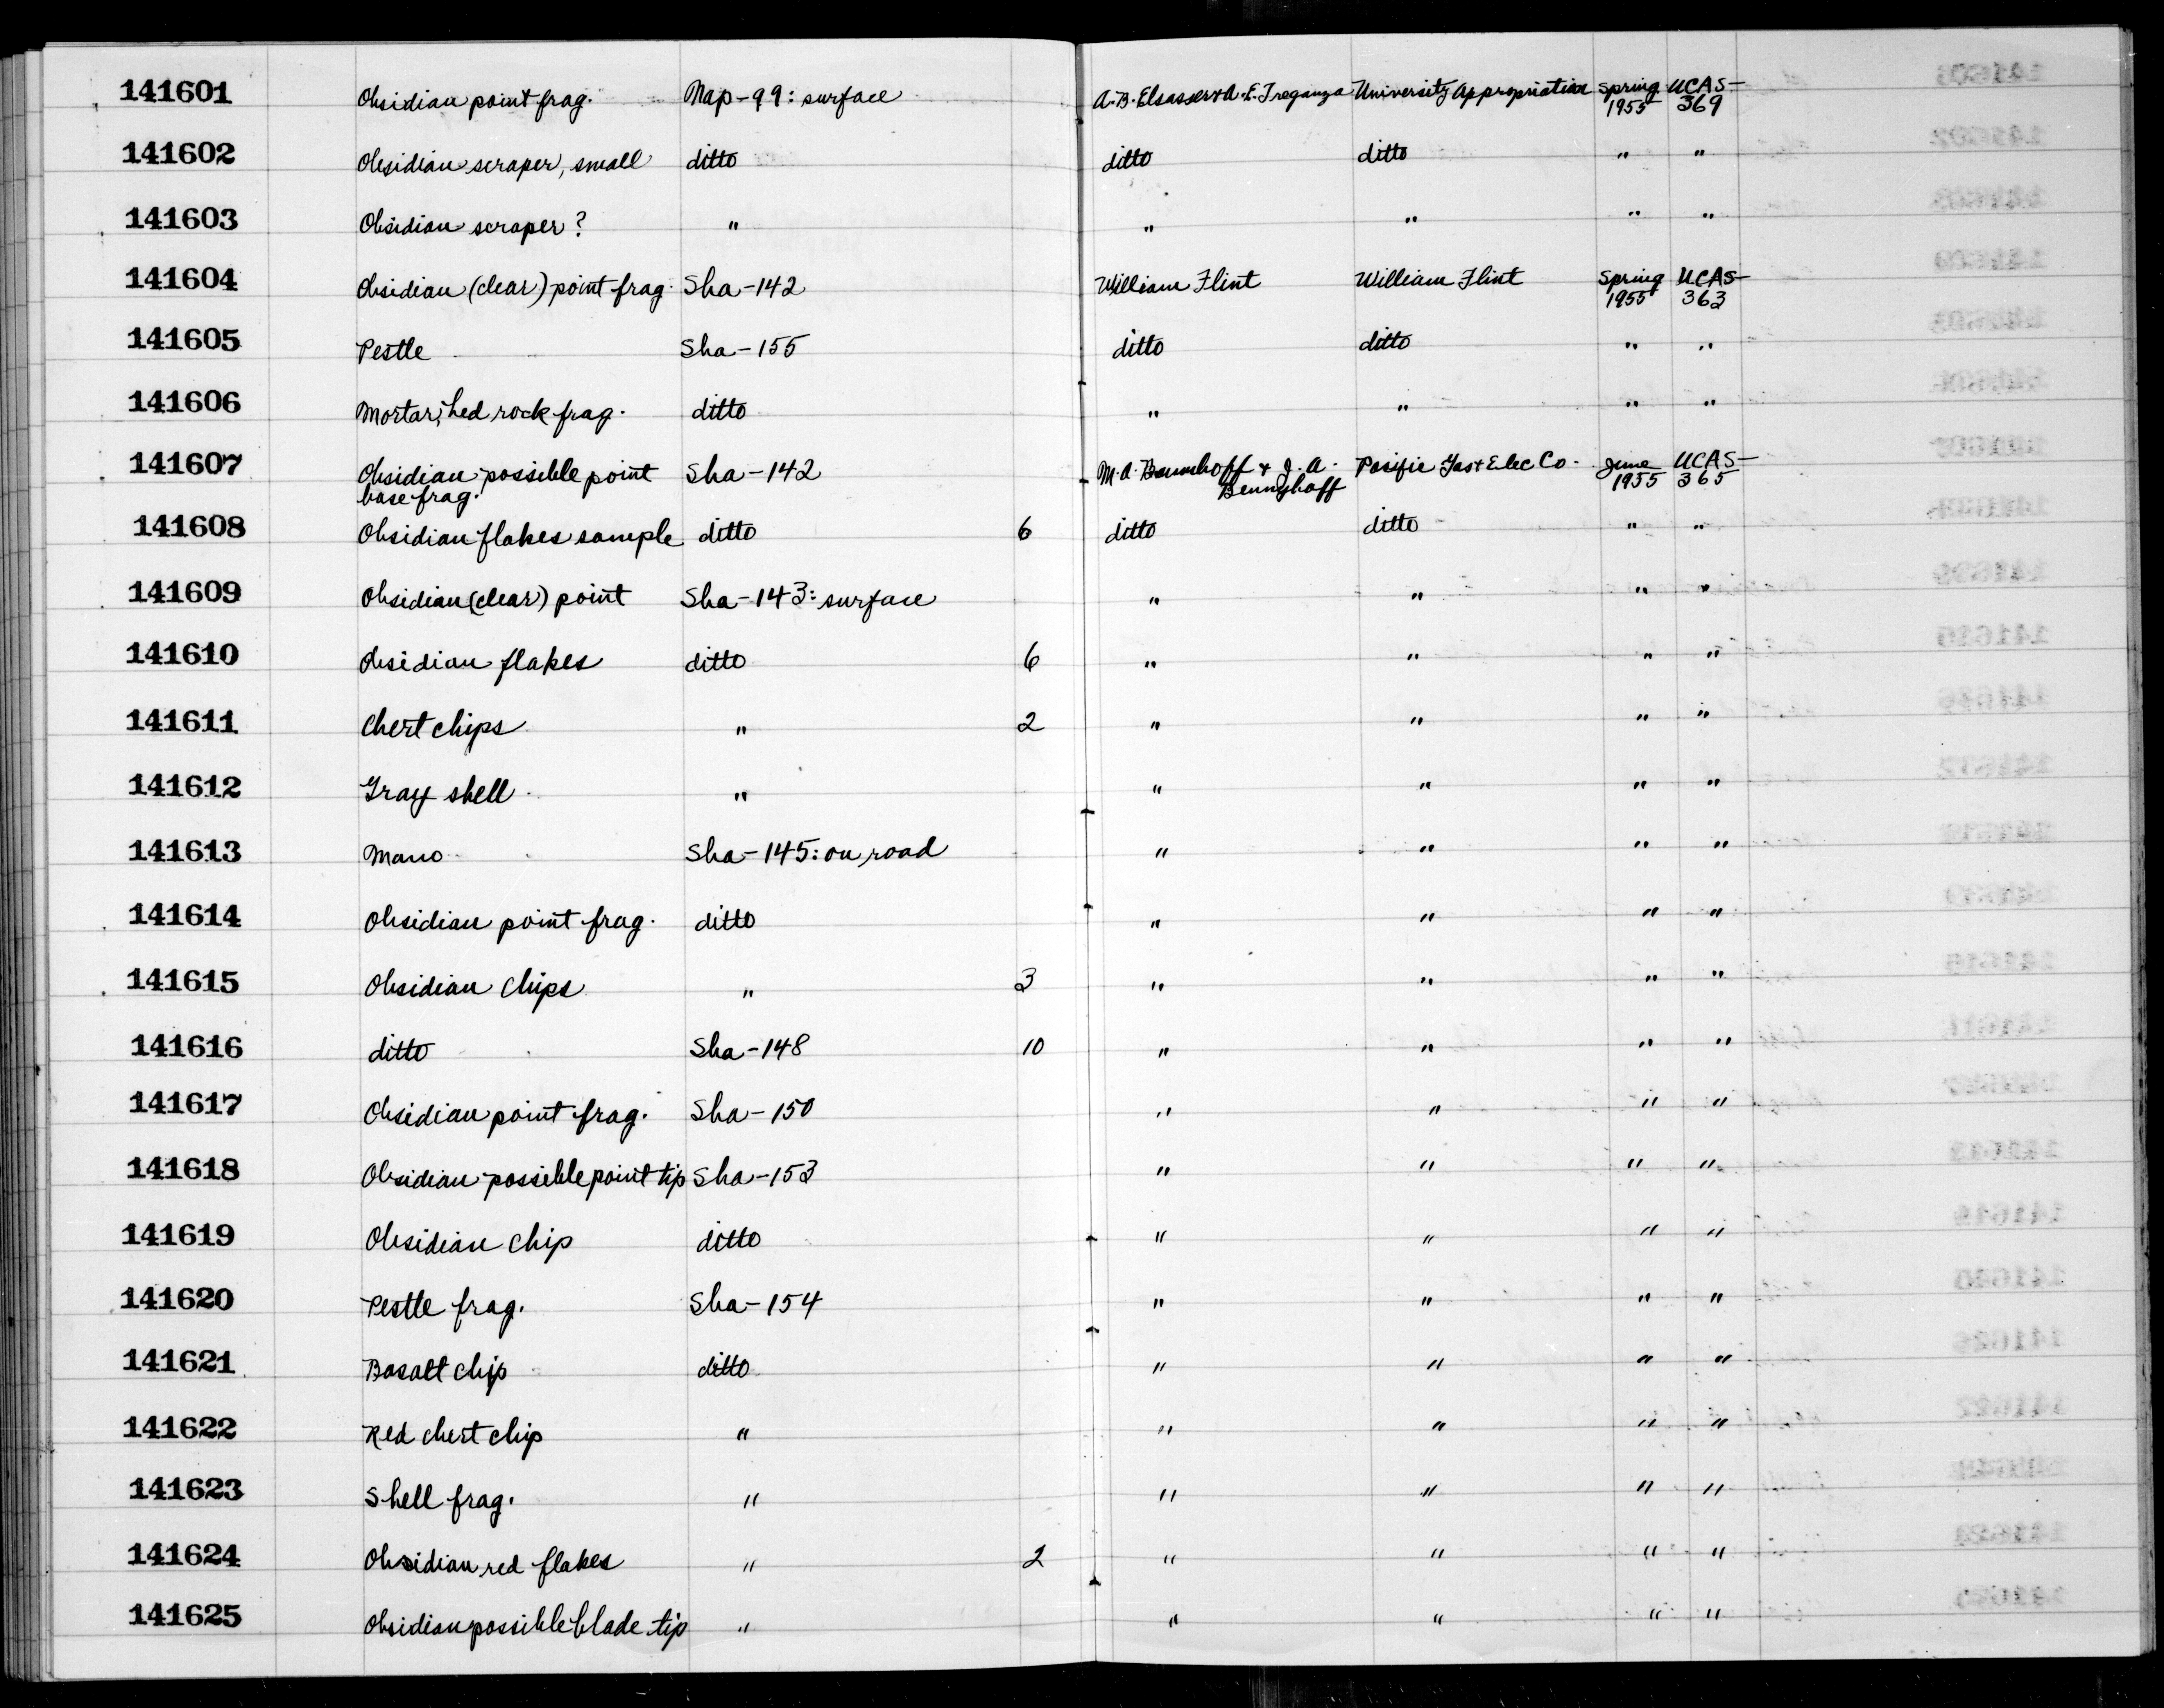 141601 Obsidian point frag. Nap-99: surface A. B. Elsasser & A. E. Treganza University Appropriation Spring 1955 UCAS-369
141602 Obsidian scraper, small ditto ditto ditto " "
141603 Obsidian scraper? " " " " "
141604 Obsidian (clear) point frag. Sha-142 William Flint William Flint Spring 1955 UCAS-363
141605 Pestle Sha-155 ditto ditto " "
141606 Mortar, bed rock frag. ditto " " " "
141607 Obsidian possible point base frag. Sha-142 M. A. Baumhoff & J. A. Bennyhoff Pacific Gas & Elec Co. June 1955 UCAS-365
141608 Obsidian flakes sample ditto 6 ditto ditto " "
141609 Obsidian (clear) point Sha-143: surface " " " "
141610 Obsidian flakes ditto 6 " " " "
141611 Chert chips " 2 " " " "
141612 Gray shell " " " " "
141613 Mano Sha-145: on road " " " "
141614 Obsidian point frag. ditto " " " "
141615 Obsidian chips " 3 " " " "
141616 ditto Sha-148 10 " " " "
141617 Obsidian point frag. Sha-150 " " " "
141618 Obsidian possible point tip Sha-153 " " " "
141619 Obsidian chip ditto " " " "
141620 Pestle frag. Sha-154 " " " "
141621 Basalt chip ditto " " " "
141622 Red chert chip " " " " "
141623 Shell frag. " " " " "
141624 Obsidian red flakes " 2 " " " "
141625 Obsidian possible blade tip " " " " "